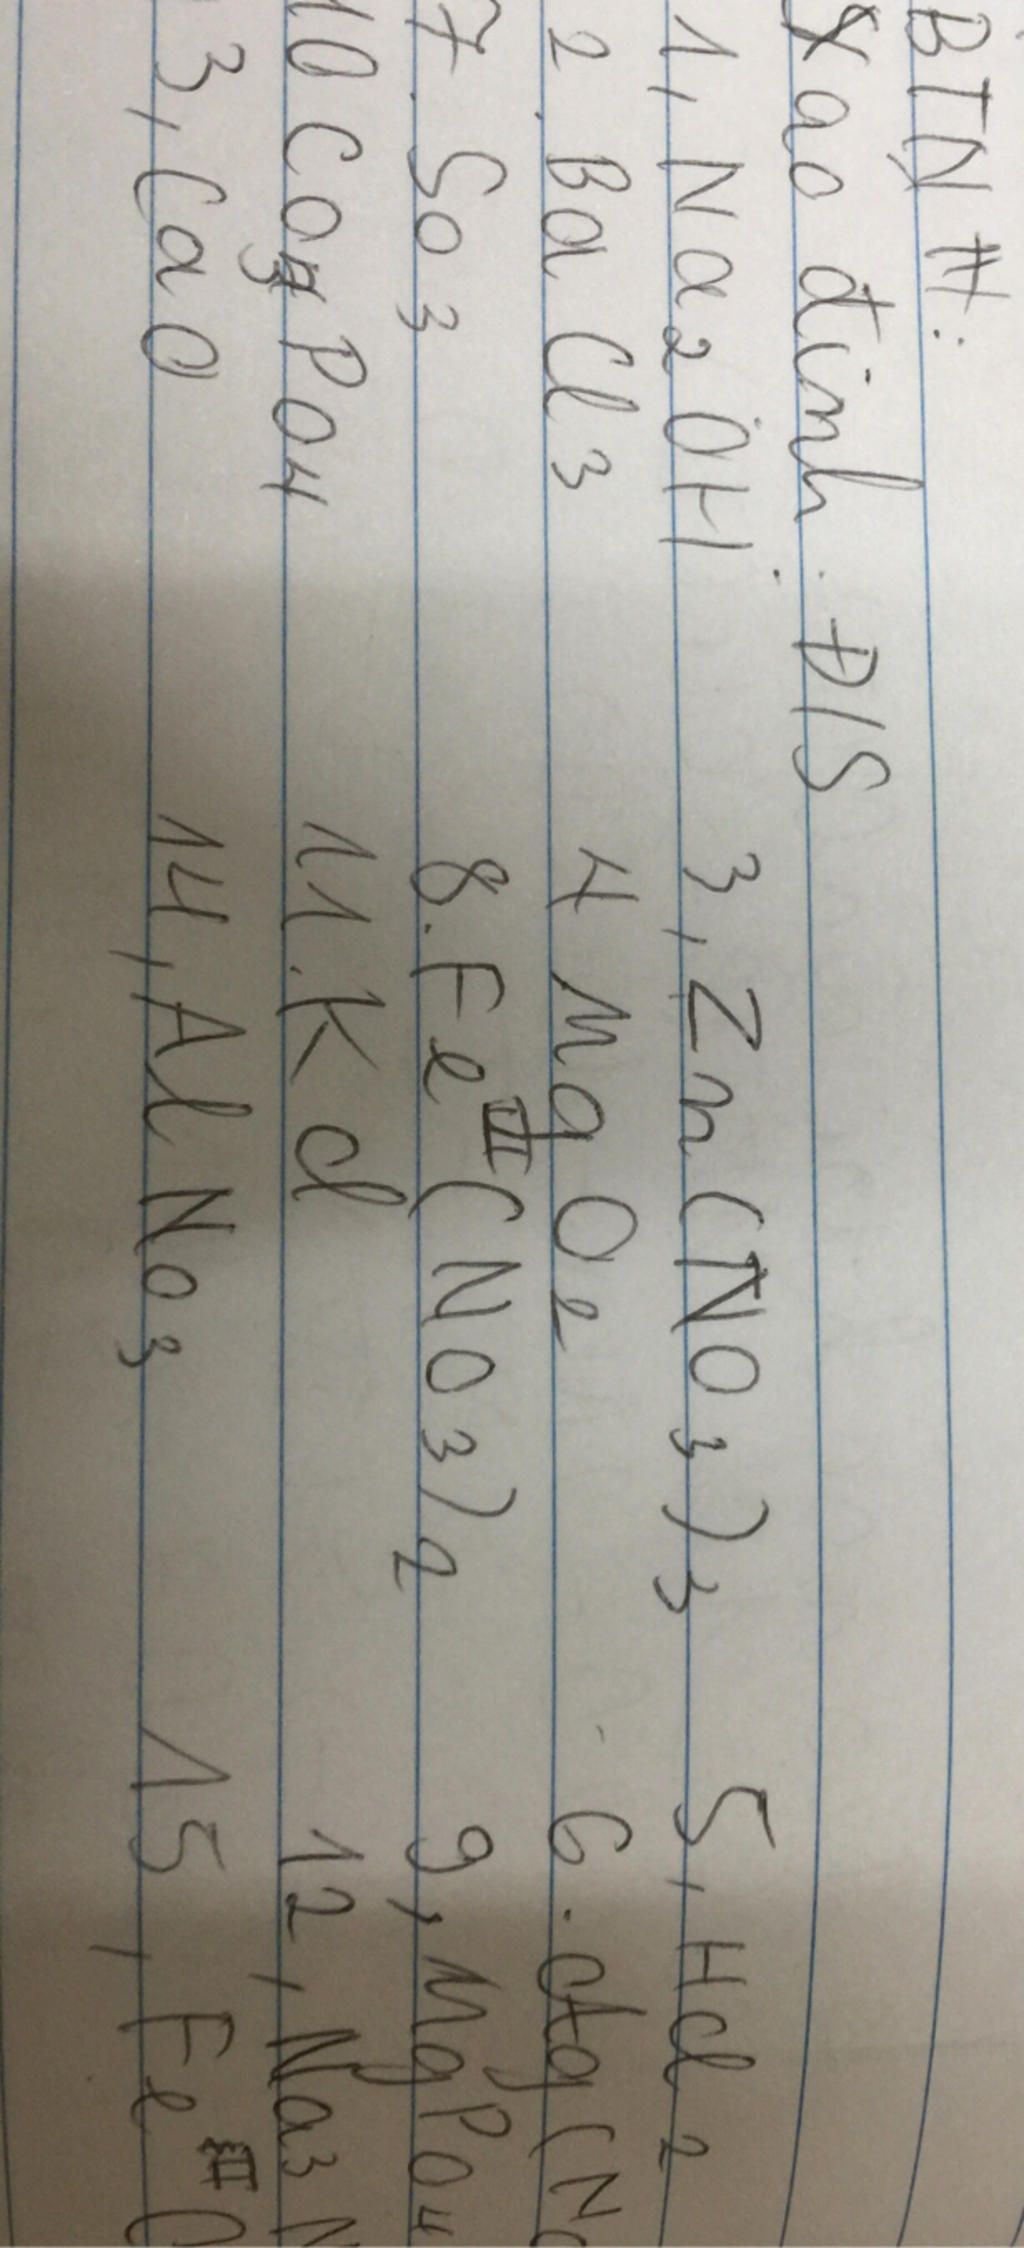 BTNH:
Xao định Đ/S
1, Na2OH 3, Zn(NO3)3 5, Hcl2
2. BaCl3 4 MgO2 6. Ag(No
7. So3 8. FeIII(NO3)2 9, MgPO4
10 Co3PO4 11. Kcl 12, Na3N
3, CaO 14, AlNo3 15, FeIIIO